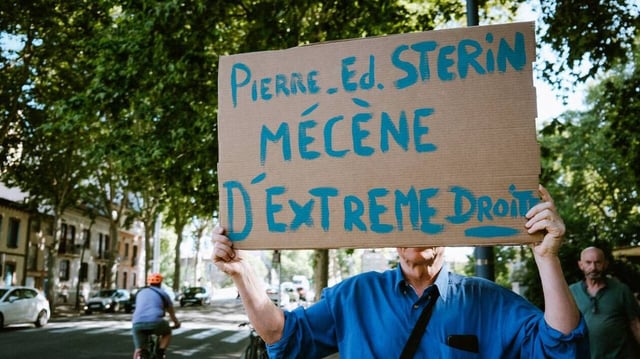 PIERRE-ED. STERiN
MÉCÈNE
D'EXTREME DROiTE